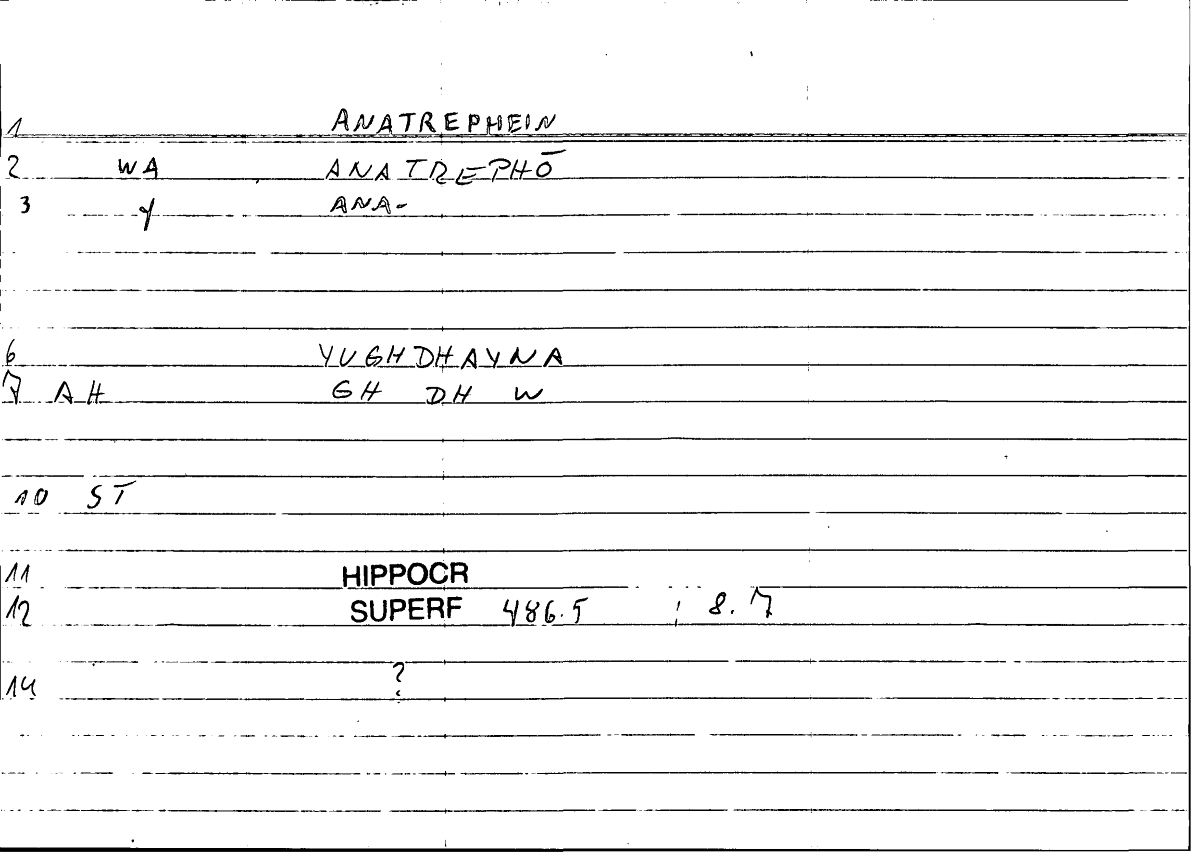 1 ANATREPHEIN
2 WA ANATREPHŌ
3 Y ANA-
6 YUGHDHAYNA
7 AH GH DH W
10 ST
11 HIPPOCR
12 SUPERF 486.5 ; 8.7
14 ?